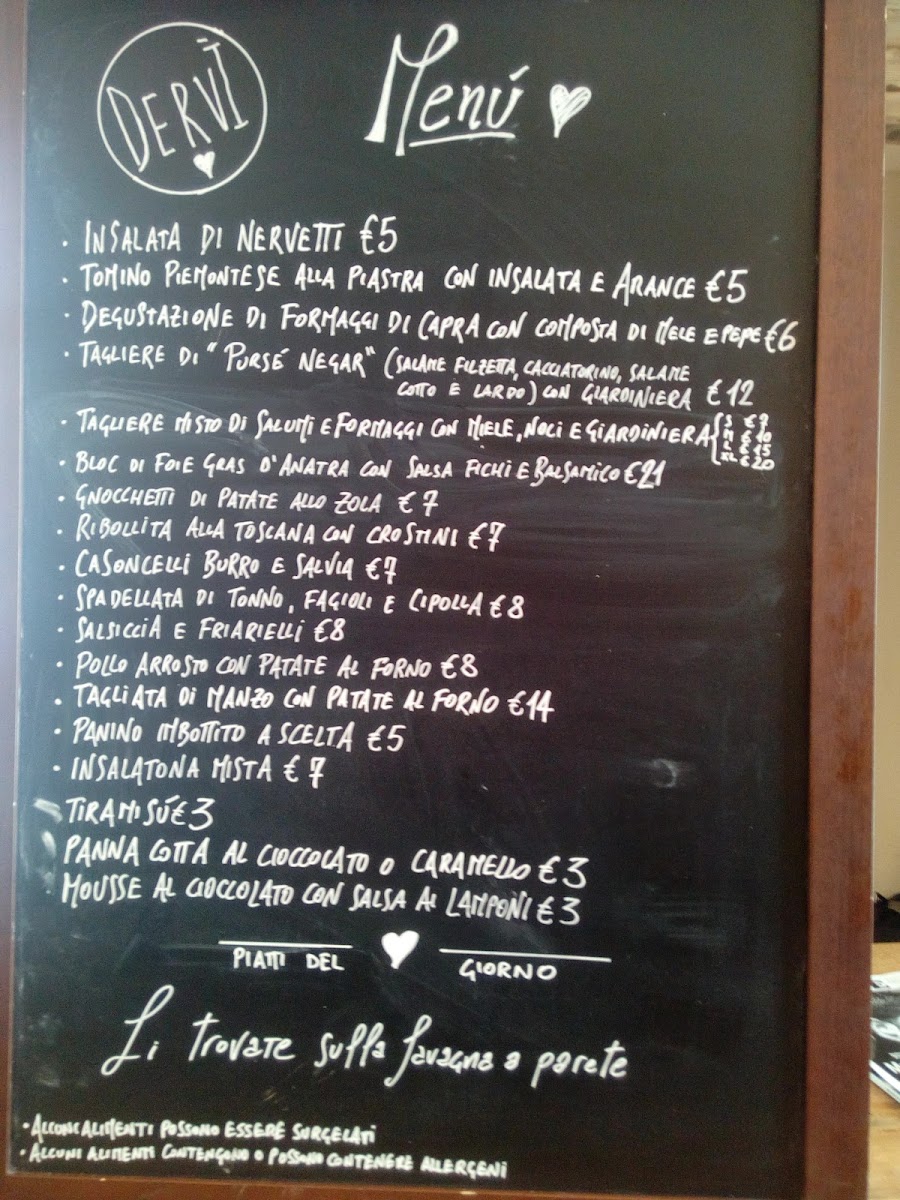 DERVÌ
Menú
· INSALATA DI NERVETTI €5
· TOMINO PIEMONTESE ALLA PIASTRA CON INSALATA E ARANCE €5
· DEGUSTAZIONE DI FORMAGGI DI CAPRA CON COMPOSTA DI MELE E PEPE €6
· TAGLIERE DI "PURSÉ NEGAR" (SALAME FILZETTA, CACCIATORINO, SALAME
COTTO E LARDO) CON GIARDINIERA €12
· TAGLIERE MISTO DI SALUMI E FORMAGGI CON MIELE, NOCI E GIARDINIERA
M € 10
L € 15
XL € 20
· BLOC DI FOIE GRAS D'ANATRA CON SALSA FICHI E BALSAMICO €21
· GNOCCHETTI DI PATATE ALLO ZOLA €7
· RIBOLLITA ALLA TOSCANA CON CROSTINI €7
· CASONCELLI BURRO E SALVIA €7
· SPADELLATA DI TONNO, FAGIOLI E CIPOLLA €8
· SALSICCIA E FRIARIELLI €8
· POLLO ARROSTO CON PATATE AL FORNO €8
· TAGLIATA DI MANZO CON PATATE AL FORNO €14
· PANINO IMBOTTITO A SCELTA €5
· INSALATONA MISTA €7
TIRAMISÚ €3
PANNA COTTA AL CIOCCOLATO O CARAMELLO €3
MOUSSE AL CIOCCOLATO CON SALSA AI LAMPONI €3
PIATTI DEL GIORNO
Li trovate sulla lavagna a parete
· ALCUNI ALIMENTI POSSONO ESSERE SURGELATI
· ALCUNI ALIMENTI CONTENGONO O POSSONO CONTENERE ALLERGENI